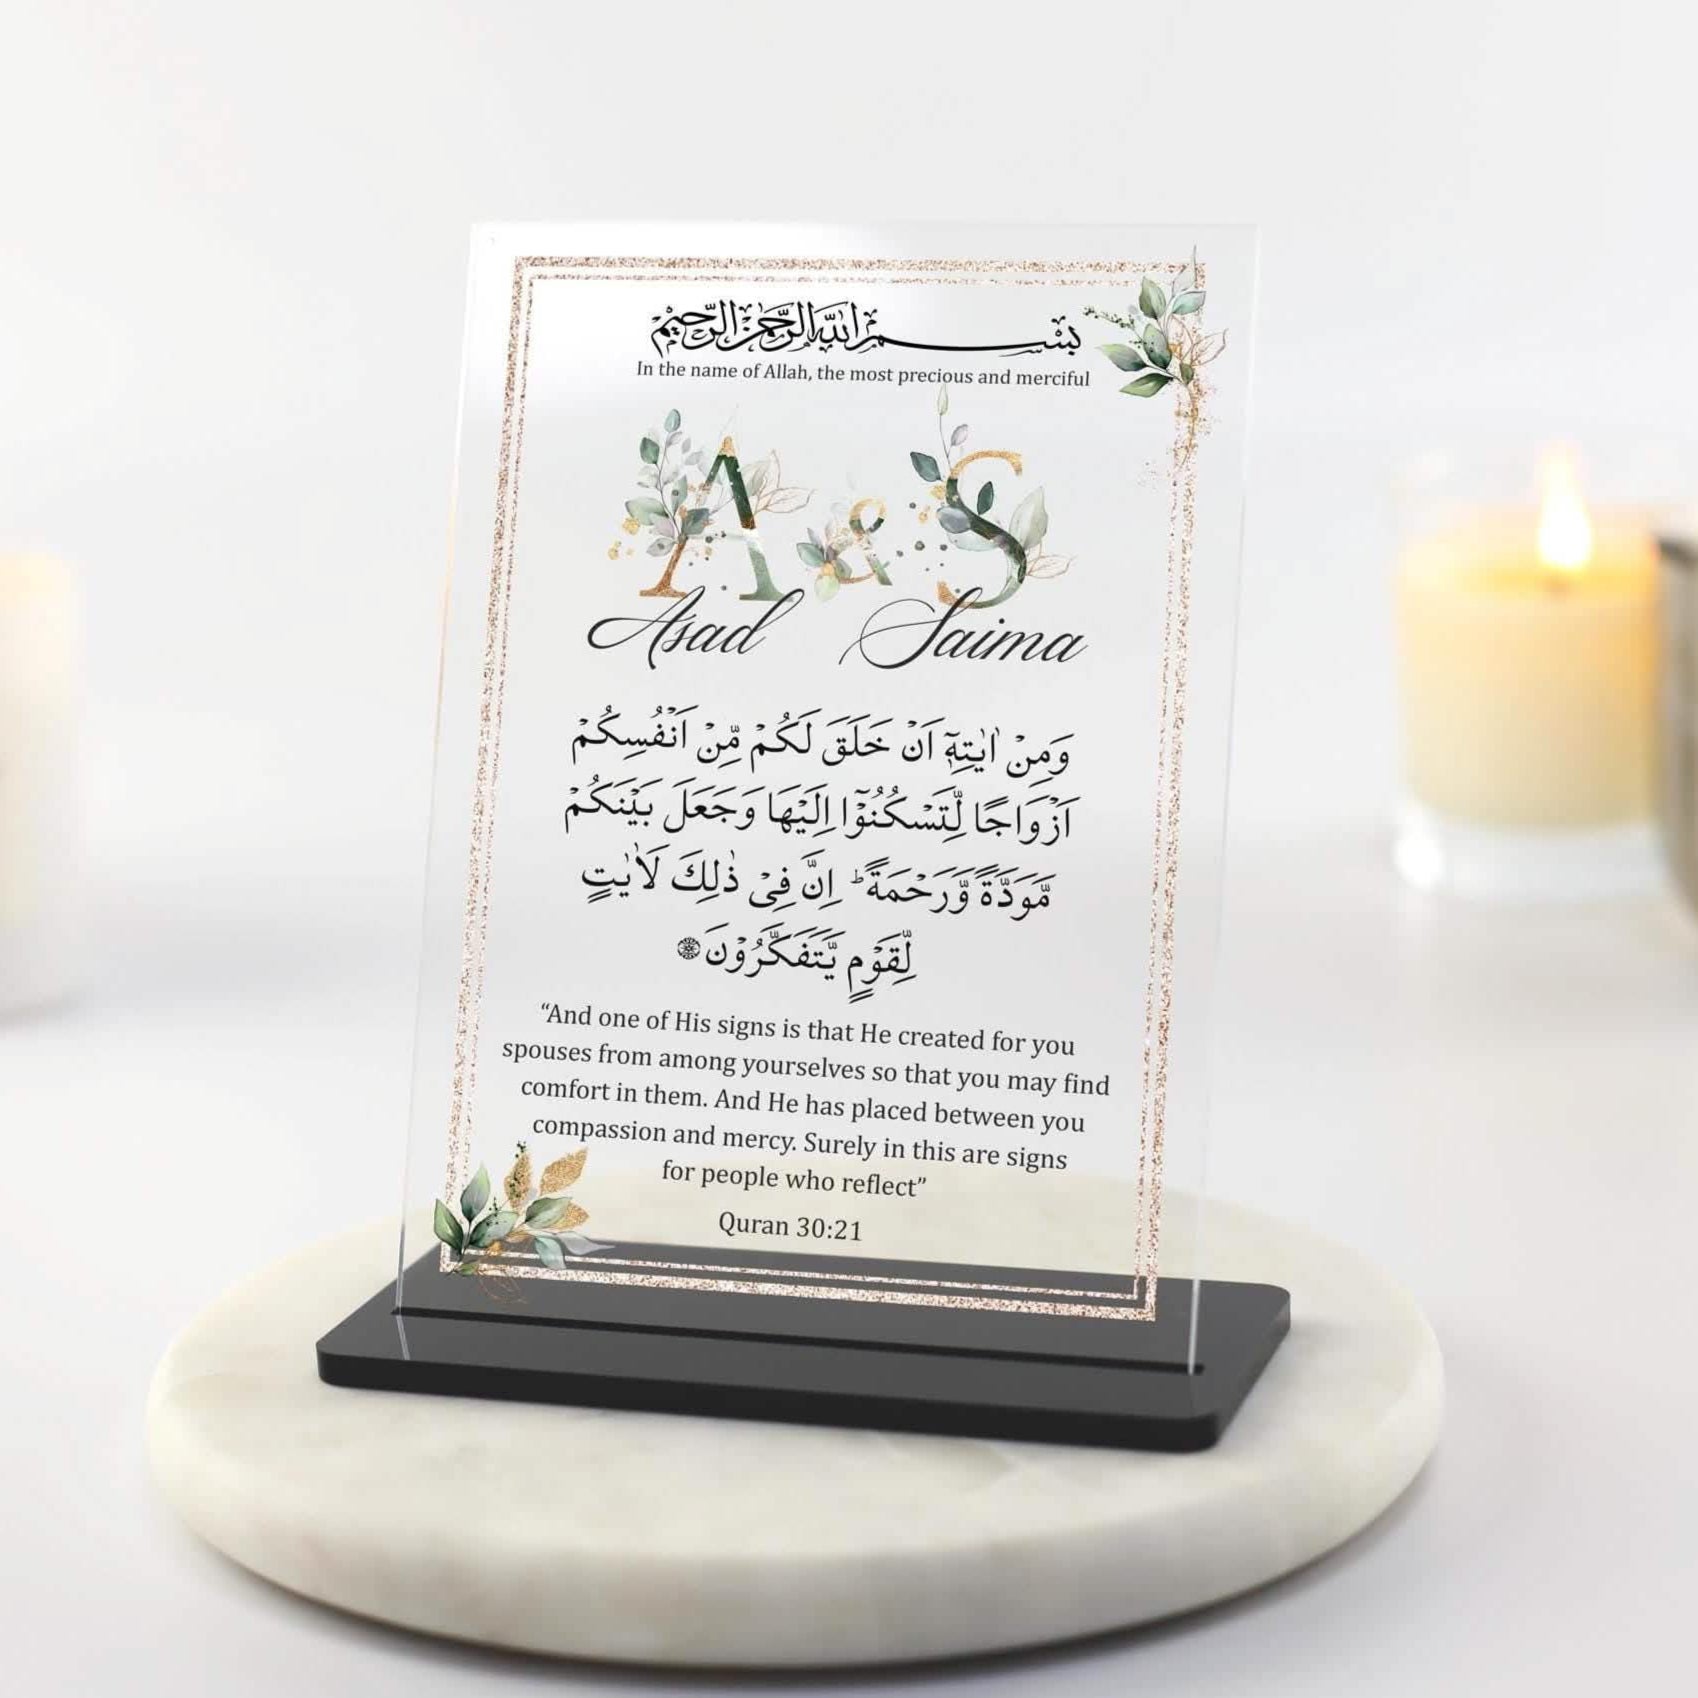 بِسْمِ اللهِ الرَّحْمٰنِ الرَّحِيْمِ
In the name of Allah, the most precious and merciful
A & S
Asad Saima
وَمِنْ اٰيٰتِهٖٓ اَنْ خَلَقَ لَكُمْ مِّنْ اَنْفُسِكُمْ
اَزْوَاجًا لِّتَسْكُنُوْٓا اِلَيْهَا وَجَعَلَ بَيْنَكُمْ
مَّوَدَّةً وَّرَحْمَةً ؕ اِنَّ فِيْ ذٰلِكَ لَاٰيٰتٍ
لِّقَوْمٍ يَّتَفَكَّرُوْنَ
“And one of His signs is that He created for you
spouses from among yourselves so that you may find
comfort in them. And He has placed between you
compassion and mercy. Surely in this are signs
for people who reflect”
Quran 30:21